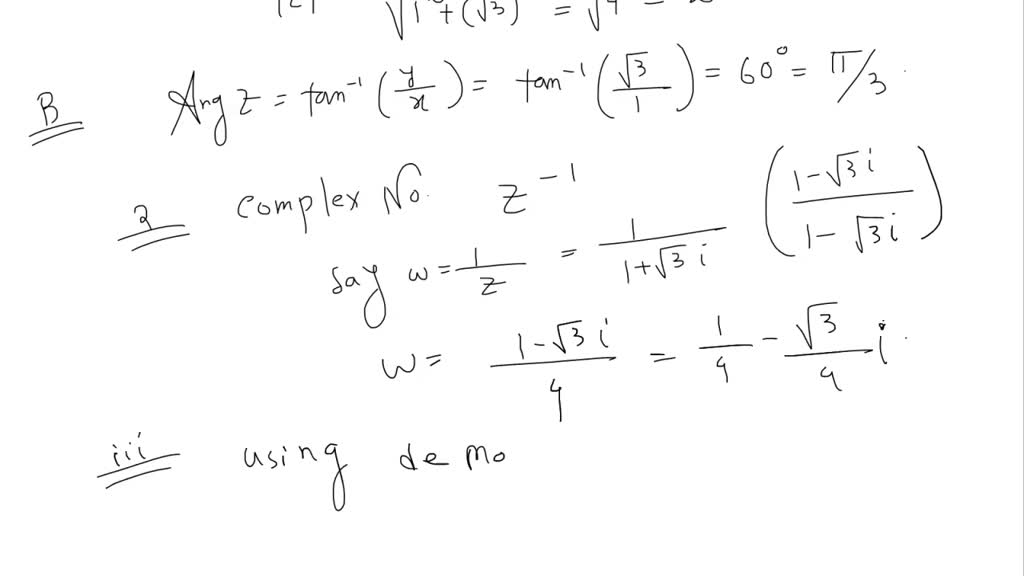 |z| √1² + (√3) = √4 =
B Arg z = tan⁻¹ (y/x) = tan⁻¹ (√3/1) = 60° = π/3 .
2 Complex No. z⁻¹
say w = 1/z = 1/(1+√3 i) ((1-√3 i)/(1-√3 i))
w = (1-√3 i)/4 = 1/4 - √3/4 i .
iii using de mo